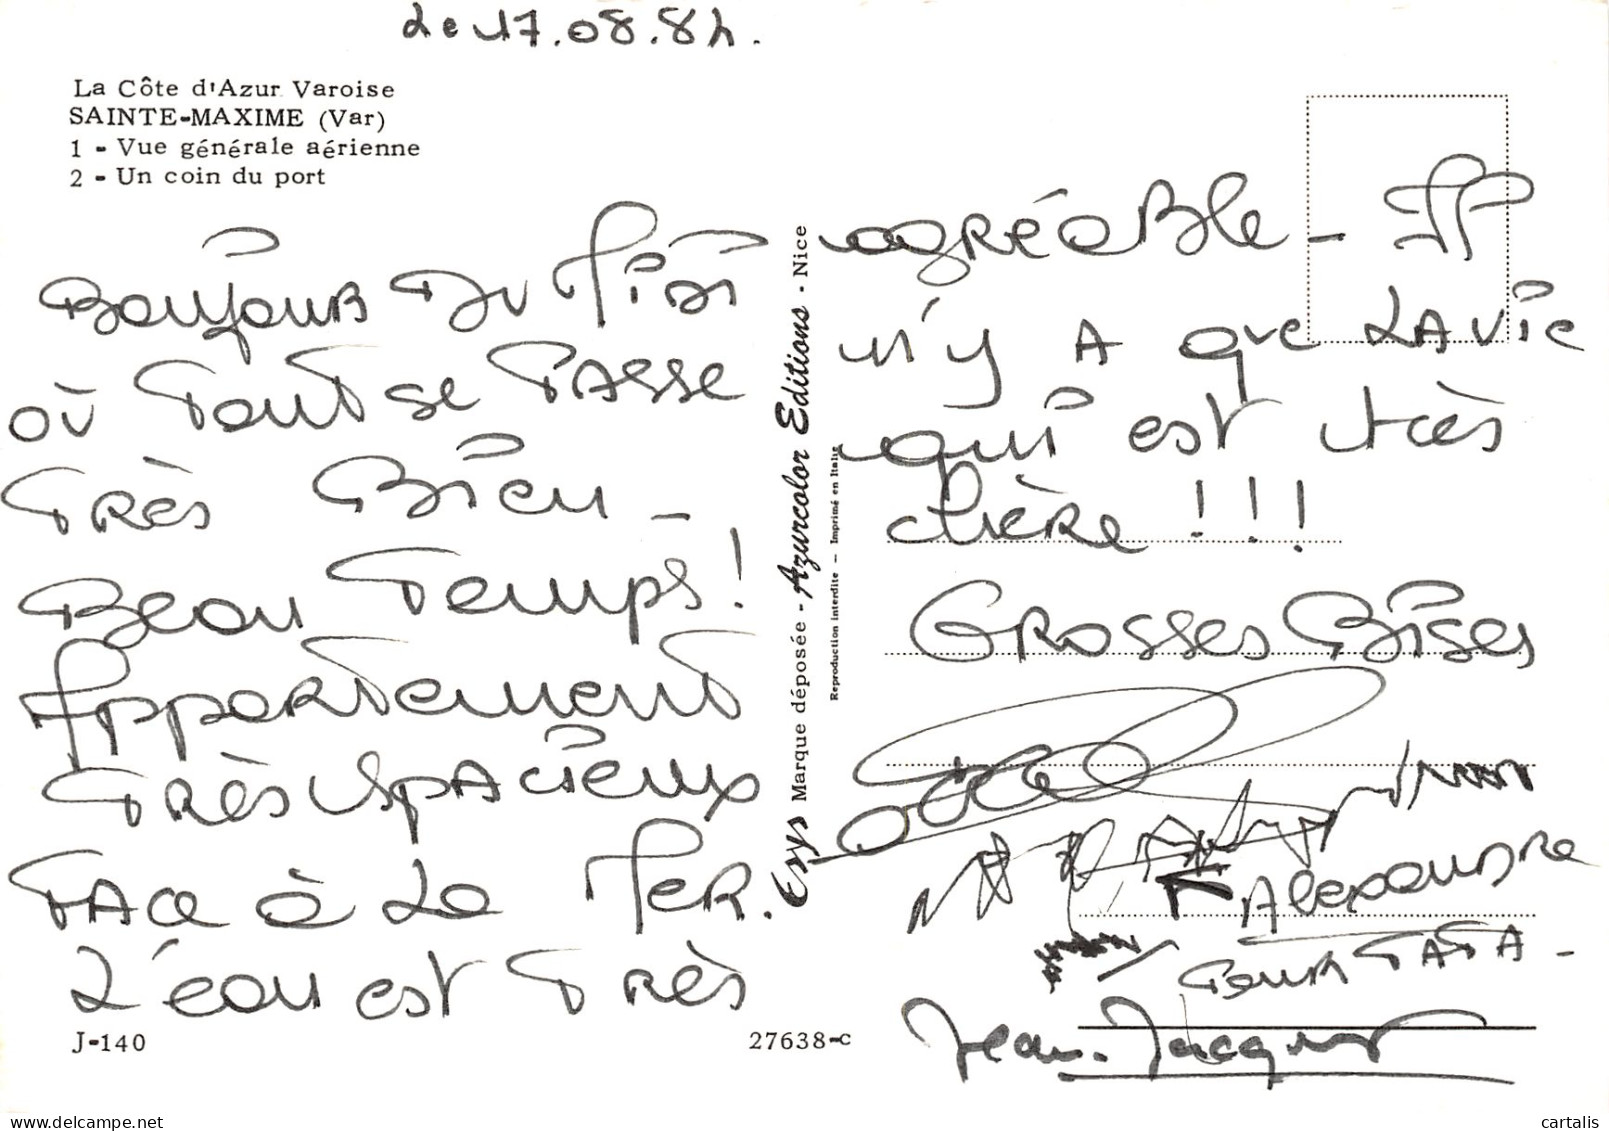 Le 17.08.82.
La Côte d'Azur Varoise
SAINTE-MAXIME (Var)
1 - Vue générale aérienne
2 - Un coin du port
Bonjour Du Midi
où Tout se Passe
Très Bien -
Beau Temps !
Appartement
Très Spacieux
Face à La Mer.
L'eau est Très
agréable - Il
n'y A que LA vie
qui est très
chère !!!
Grosses Bises
Alexandre
Pour TATA -
Jean-Jacques
Esys Marque déposée - Azurcolor Editions - Nice
Reproduction interdite - Imprimé en Italie
J-140
27638-c
cartalis